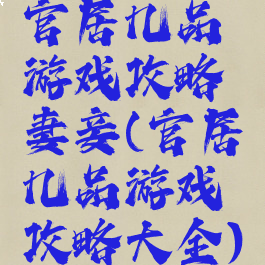 官居九品
游戏攻略
妻妾(官居
九品游戏
攻略大全)